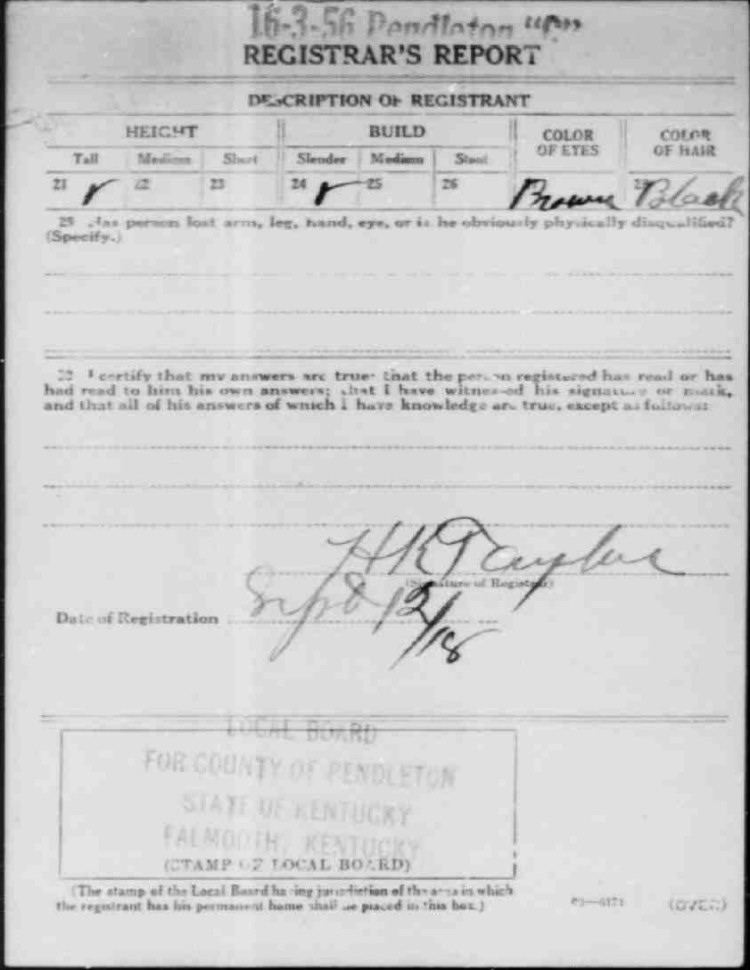 16-3-56 Pendleton "C"
REGISTRAR'S REPORT
DESCRIPTION OF REGISTRANT
HEIGHT BUILD COLOR OF EYES COLOR OF HAIR
Tall Medium Short Slender Medium Stout
21 ✓ 22 23 24 ✓ 25 26 Brown 28 Black
29 Has person lost arm, leg, hand, eye, or is he obviously physically disqualified?
(Specify.)
I certify that my answers are true; that the person registered has read or has
had read to him his own answers; that I have witnessed his signature or mark,
and that all of his answers of which I have knowledge are true, except as follows:
H K Taylor
(Signature of Registrar)
Date of Registration Sept 12/18
LOCAL BOARD
FOR COUNTY OF PENDLETON
STATE OF KENTUCKY
FALMOUTH, KENTUCKY
(STAMP OF LOCAL BOARD)
(The stamp of the Local Board having jurisdiction of the area in which
the registrant has his permanent home shall be placed in this box.)
(OVER)